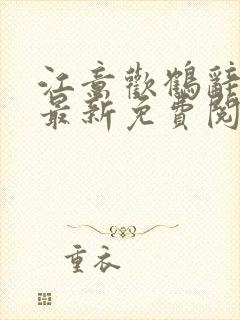 江意歡鶴辭
最新免費閱
重衣